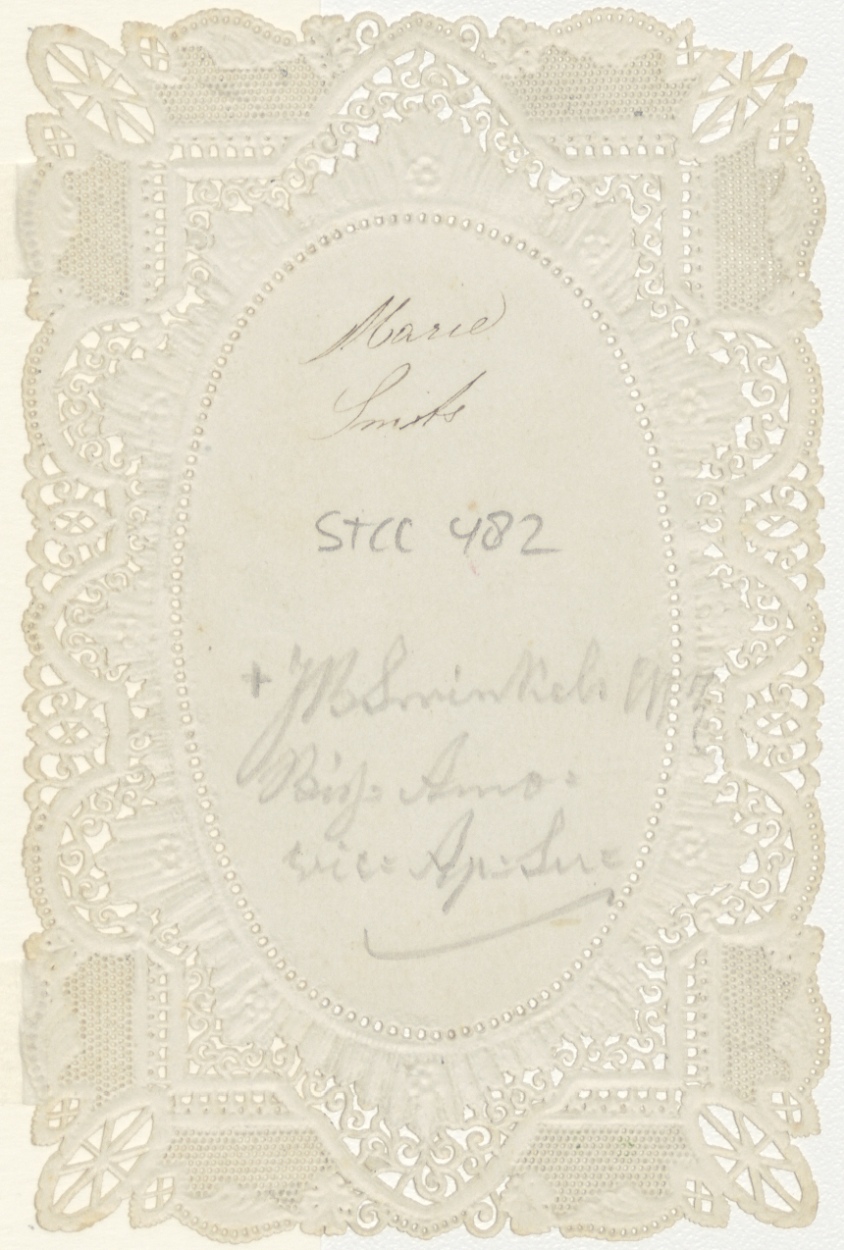 Marie
Smits
STCC 482
+ JB Swinkels
Bisp: Amo:
vic: Ap: Sur: